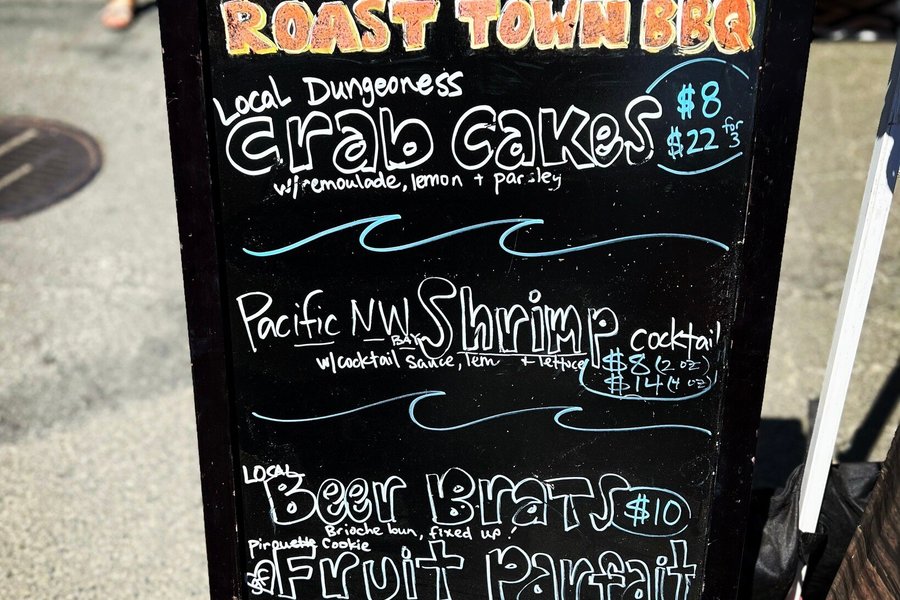 ROAST TOWN BBQ
Local Dungeoness
Crab Cakes
$8
$22 for 3
w/remoulade, lemon + parsley
Pacific NW Bay Shrimp cocktail
w/cocktail sauce, lem + lettuce
$8 (2 oz)
$14 (4 oz)
LOCAL
Beer Brats $10
Brioche bun, fixed up!
Pirouette Cookie
Fruit Parfait